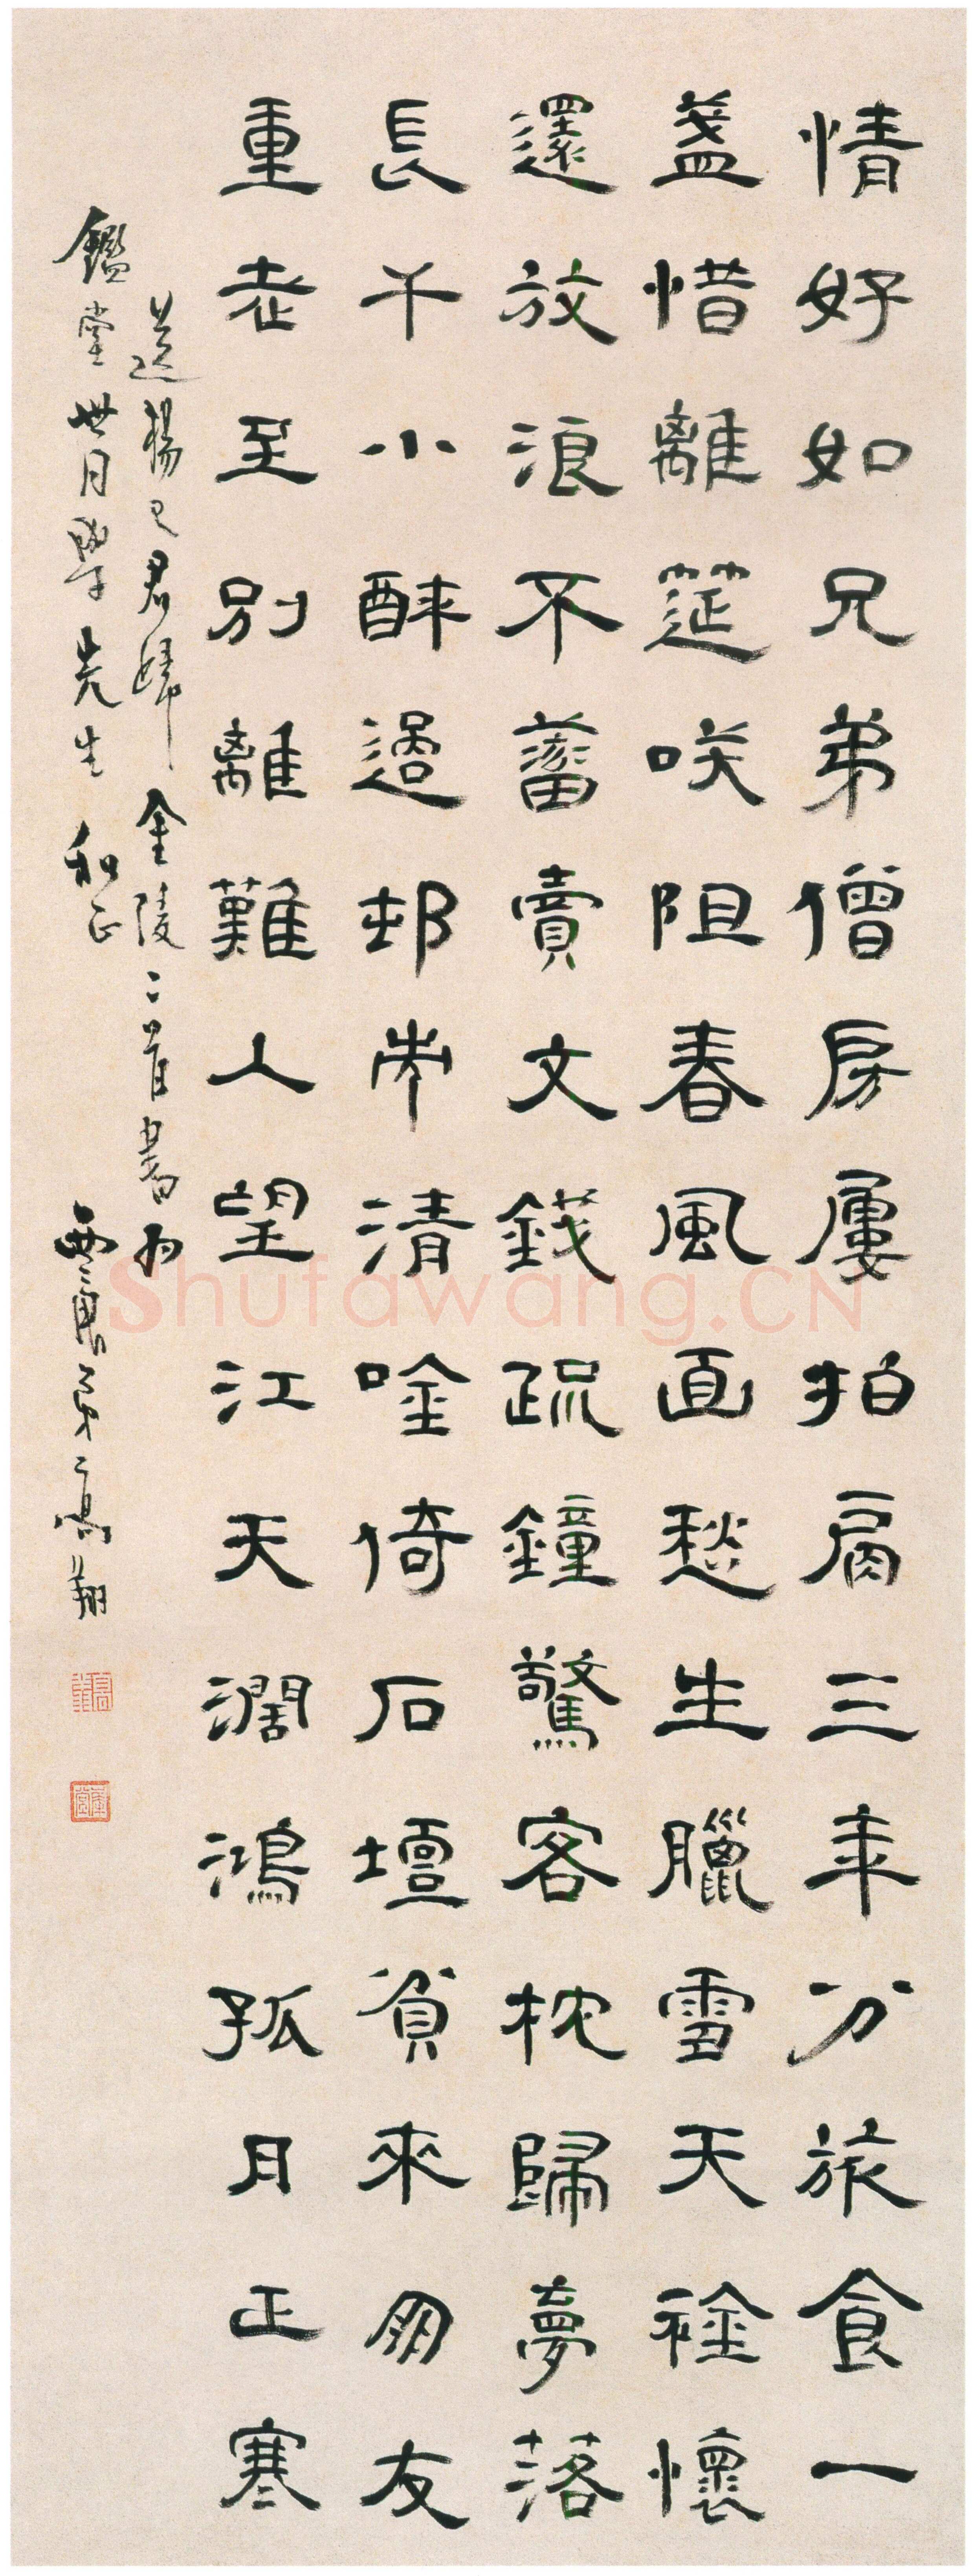 情好如兄弟僧房屢拍肩三年分旅食一
盞惜離筵咲阻春風面愁生臘雪天䘳懷
還放浪不蓄賣文錢疏鐘驚客枕歸夢落
長干小酔過邨市清唫倚石壇貧來朋友
重老至別離難人望江天濶鴻孤月正寒
送楊已君歸金陵二首書為
鑑堂世同學先生和正西唐弟高翔
高翔
Shufawang.CN